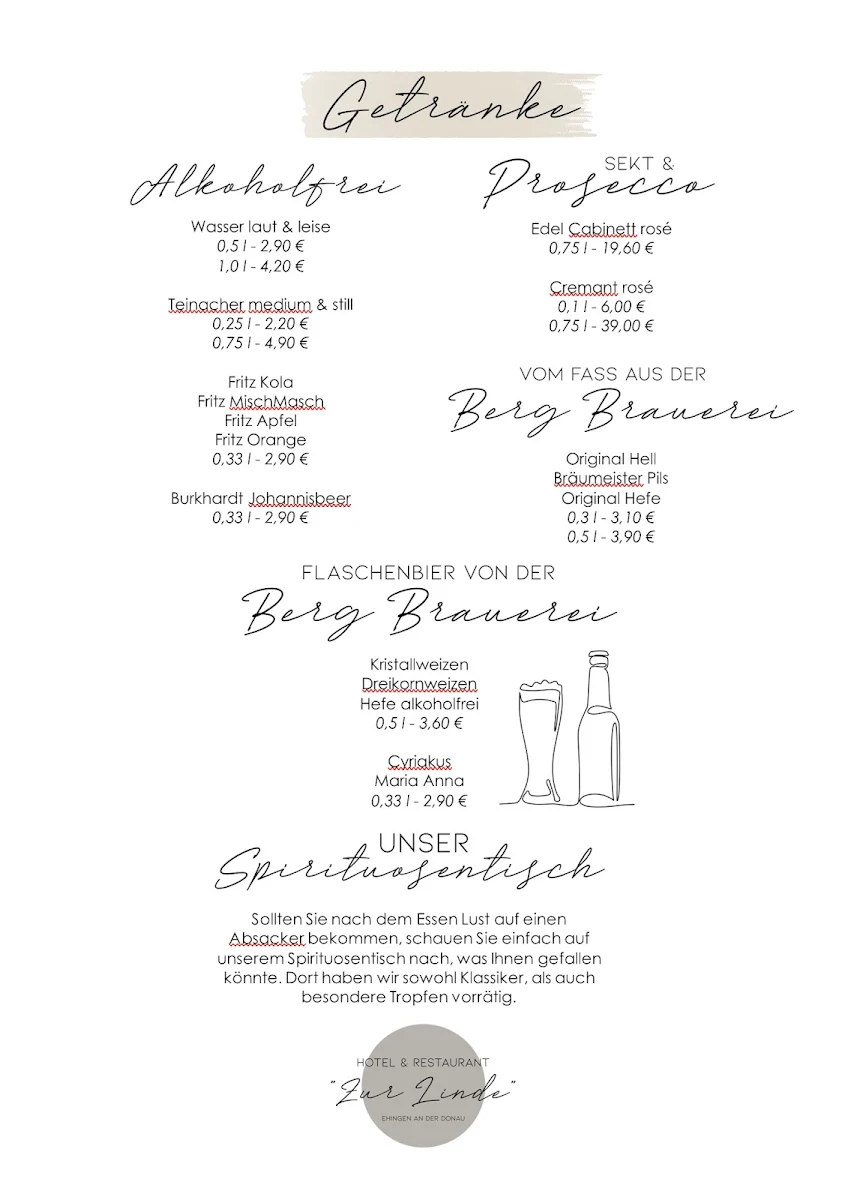 Getränke
Alkoholfrei
Wasser laut & leise
0,5 l - 2,90 €
1,0 l - 4,20 €
Teinacher medium & still
0,25 l - 2,20 €
0,75 l - 4,90 €
Fritz Kola
Fritz MischMasch
Fritz Apfel
Fritz Orange
0,33 l - 2,90 €
Burkhardt Johannisbeer
0,33 l - 2,90 €
SEKT &
Prosecco
Edel Cabinett rosé
0,75 l - 19,60 €
Cremant rosé
0,1 l - 6,00 €
0,75 l - 39,00 €
VOM FASS AUS DER
Berg Brauerei
Original Hell
Bräumeister Pils
Original Hefe
0,3 l - 3,10 €
0,5 l - 3,90 €
FLASCHENBIER VON DER
Berg Brauerei
Kristallweizen
Dreikornweizen
Hefe alkoholfrei
0,5 l - 3,60 €
Cyriakus
Maria Anna
0,33 l - 2,90 €
UNSER
Spirituosentisch
Sollten Sie nach dem Essen Lust auf einen
Absacker bekommen, schauen Sie einfach auf
unserem Spirituosentisch nach, was Ihnen gefallen
könnte. Dort haben wir sowohl Klassiker, als auch
besondere Tropfen vorrätig.
HOTEL & RESTAURANT
"Zur Linde"
EHINGEN AN DER DONAU